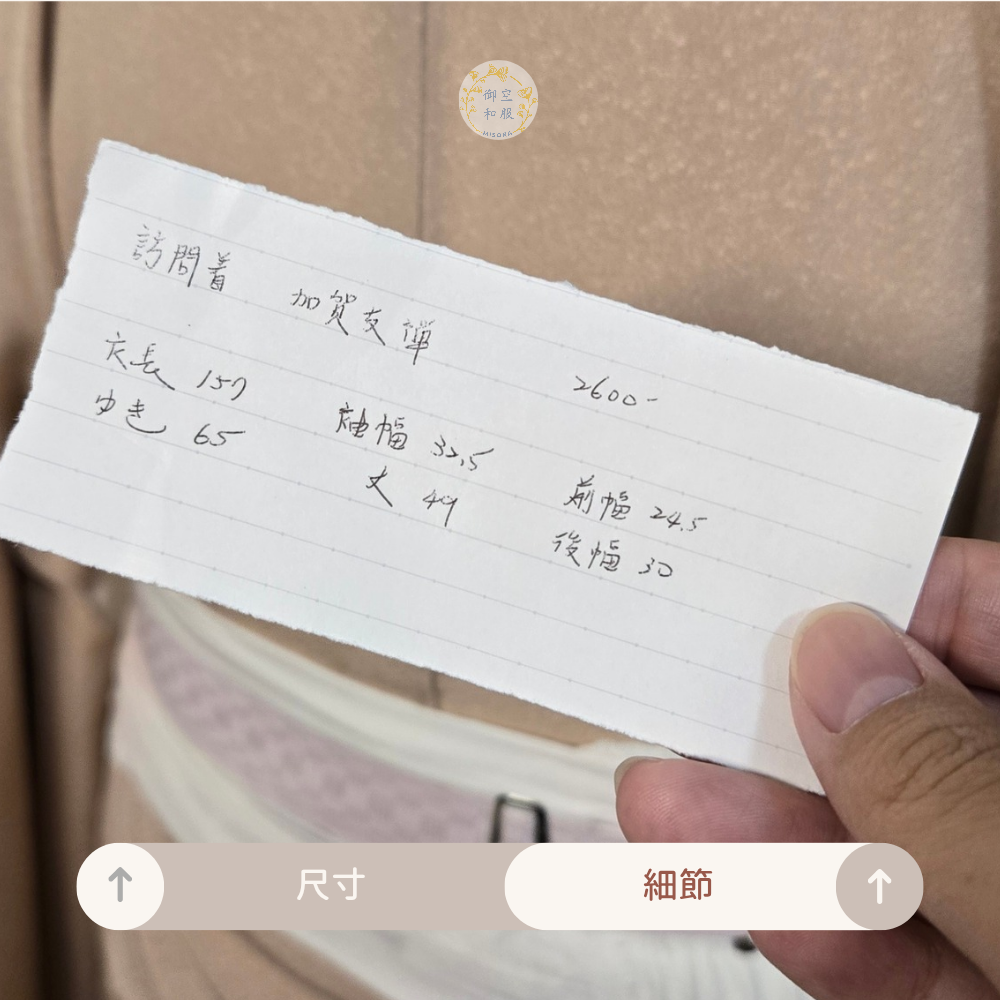 御空
和服
MISORA
訪問着 加賀友禅 2600-
衣長 157 袖幅 32.5 前幅 24.5
ゆき 65 丈 49 後幅 30
尺寸 細節